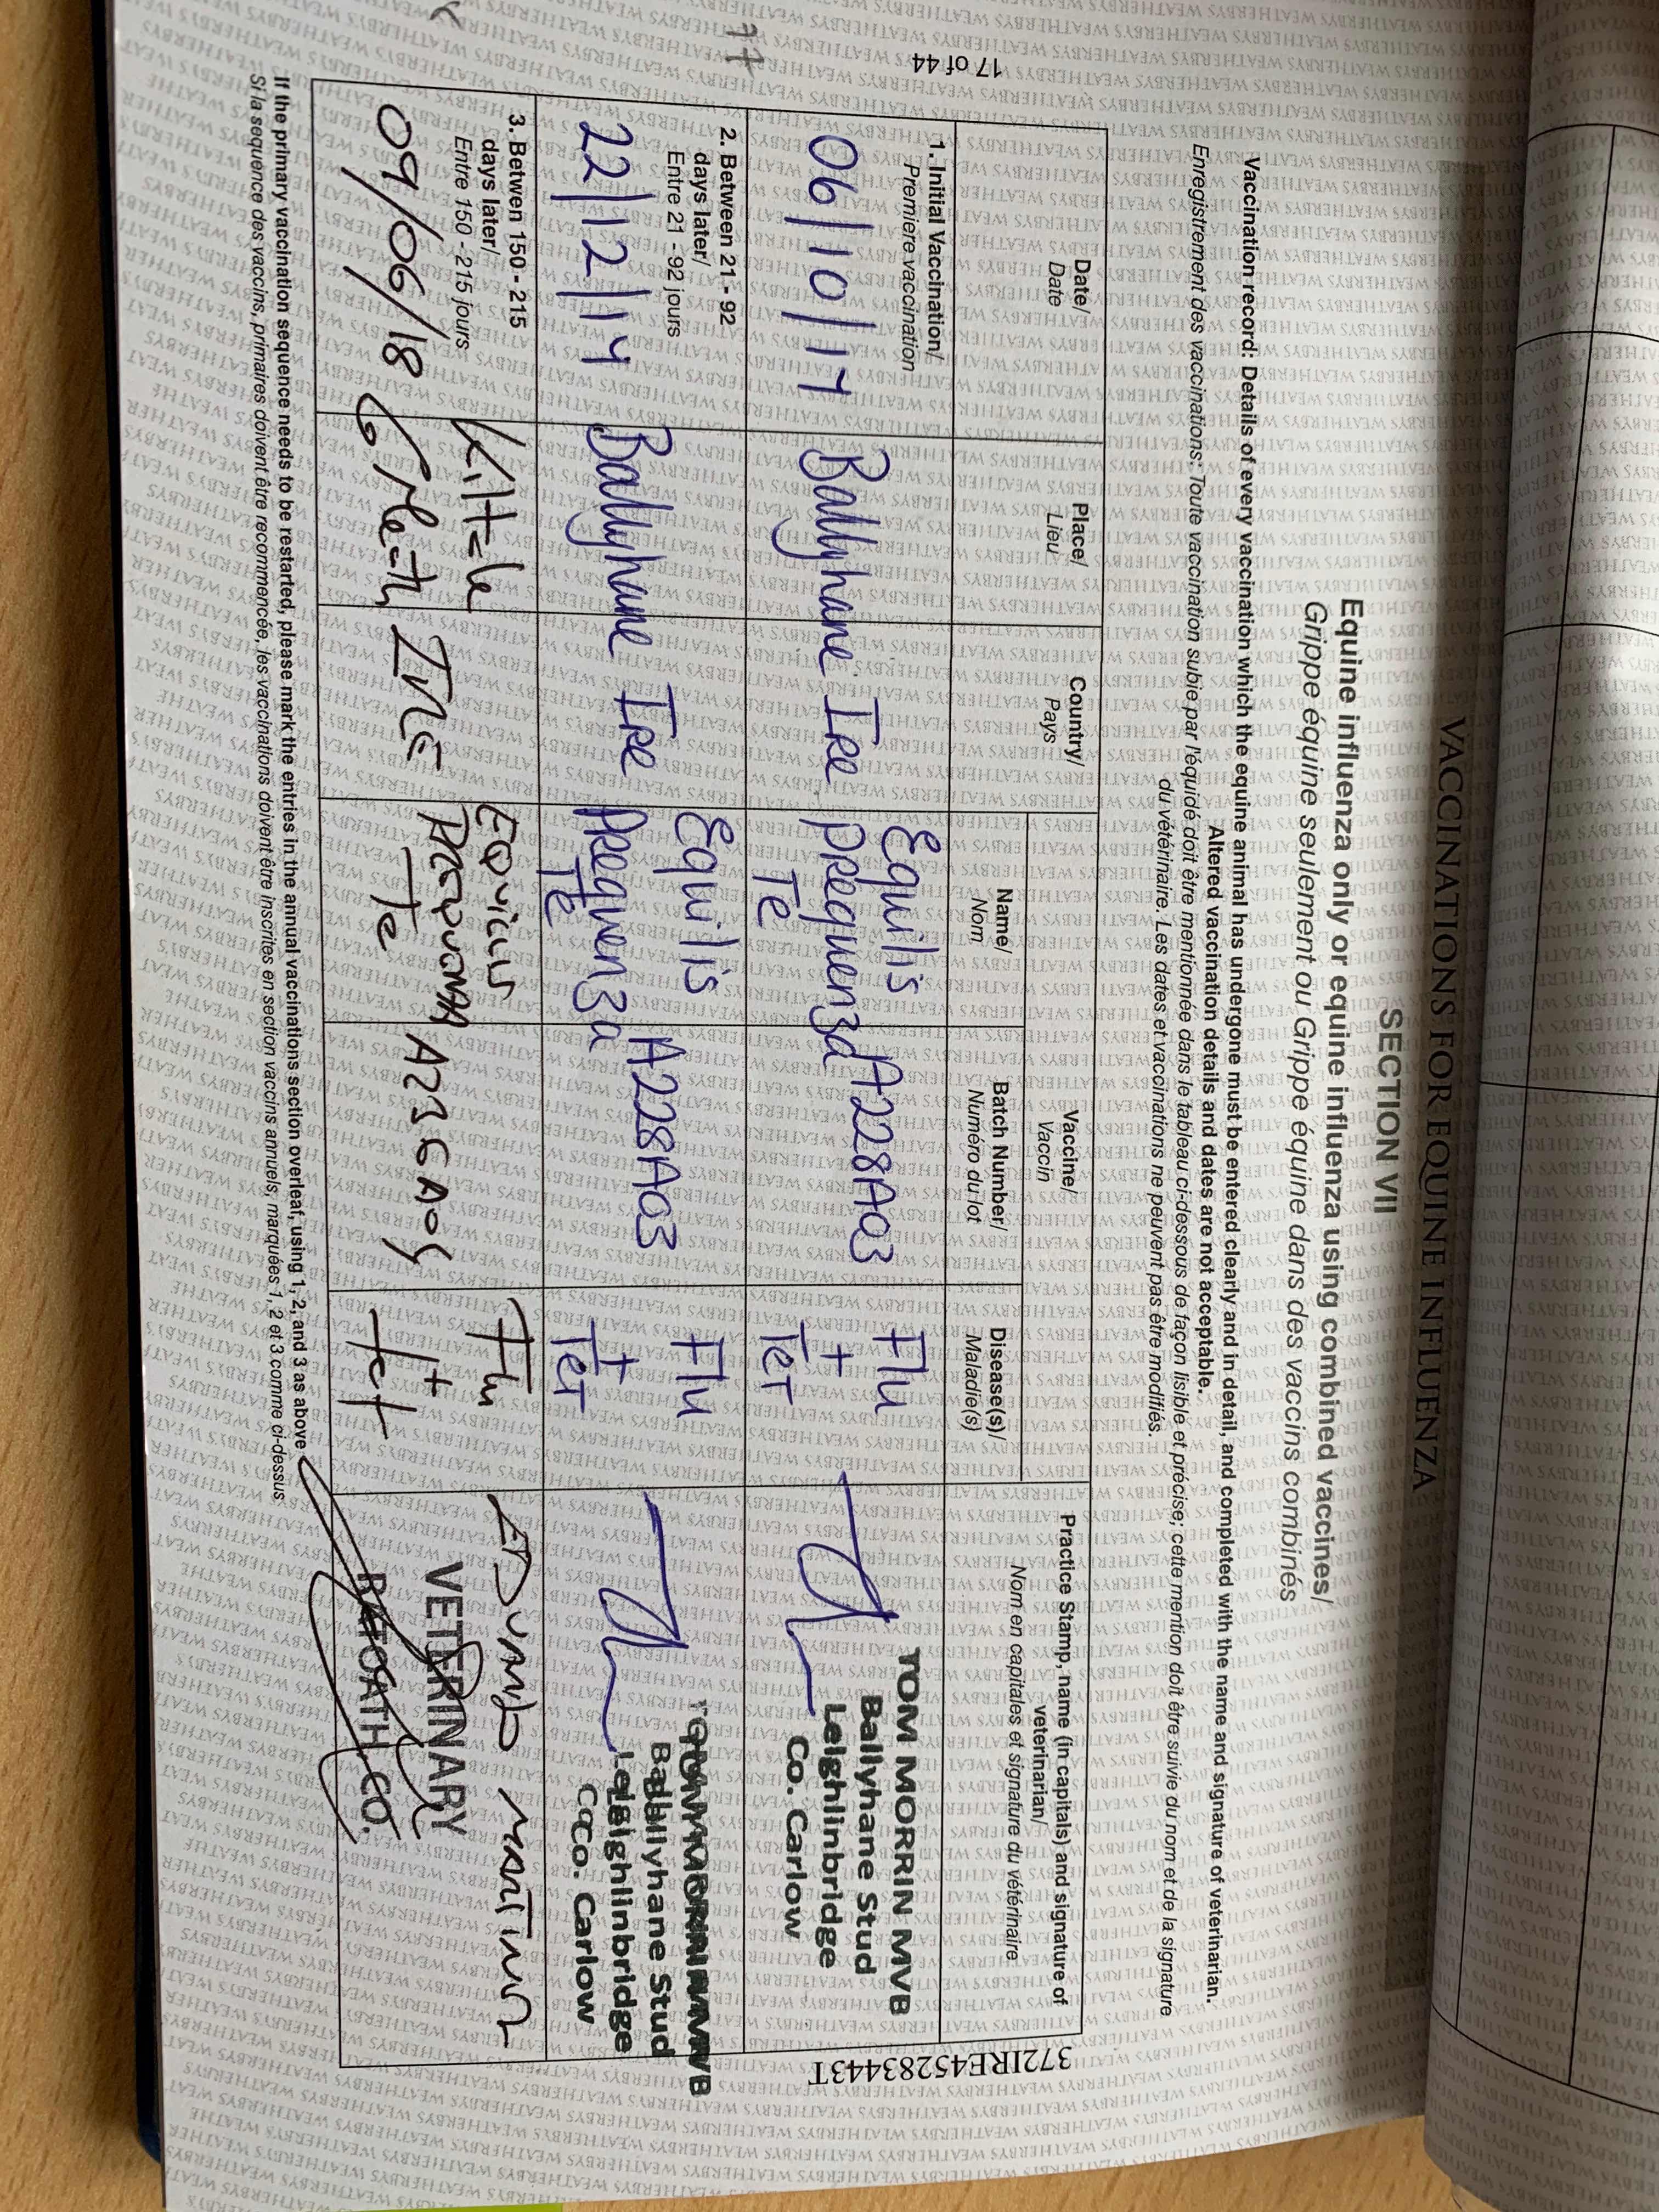 VACCINATIONS FOR EQUINE INFLUENZA
SECTION VII
Equine influenza only or equine influenza using combined vaccines/
Grippe équine seulement ou Grippe équine dans des vaccins combinés
Vaccination record: Details of every vaccination which the equine animal has undergone must be entered clearly and in detail, and completed with the name and signature of veterinarian.
Altered vaccination details and dates are not acceptable.
Enregistrement des vaccinations: Toute vaccination subie par l'équidé doit être mentionnée dans le tableau ci-dessous de façon lisible et précise; cette mention doit être suivie du nom et de la signature
du vétérinaire. Les dates et vaccinations ne peuvent pas être modifiés.
Date/
Date
Place/
Lieu
Country/
Pays
Vaccine/
Vaccin
Name/
Nom
Batch Number/
Numéro du lot
Disease(s)/
Maladie(s)
Practice Stamp, name (in capitals) and signature of
veterinarian/
Nom en capitales et signature du vétérinaire
1. Initial Vaccination/
Premiere vaccination
06/10/17
Ballyhane
Ire
Equilis
Prequenza
Te
A228A03
Flu
+
Tet
TOM MORRIN MVB
Ballyhane Stud
Leighlinbridge
Co. Carlow
2. Between 21 - 92
days later/
Entre 21 - 92 jours
22/12/17
Ballyhane
Ire
Equilis
Prequenza
Te
A228A03
Flu
+
Tet
TOM MORRIN MVB
Ballyhane Stud
Leighlinbridge
Co. Carlow
3. Betwen 150 - 215
days later/
Entre 150 - 215 jours
09/06/18
IRE
Te
Flu
+
Tet
VETERINARY
RATOATH CO.
If the primary vaccination sequence needs to be restarted, please mark the entries in the annual vaccinations section overleaf, using 1, 2, and 3 as above
Si la sequence des vaccins, primaires doivent être recommencée, les vaccinations doivent être inscrites en section vaccins annuels, marquées 1, 2 et 3 comme ci-dessus
17 of 44
372IRE45283443T